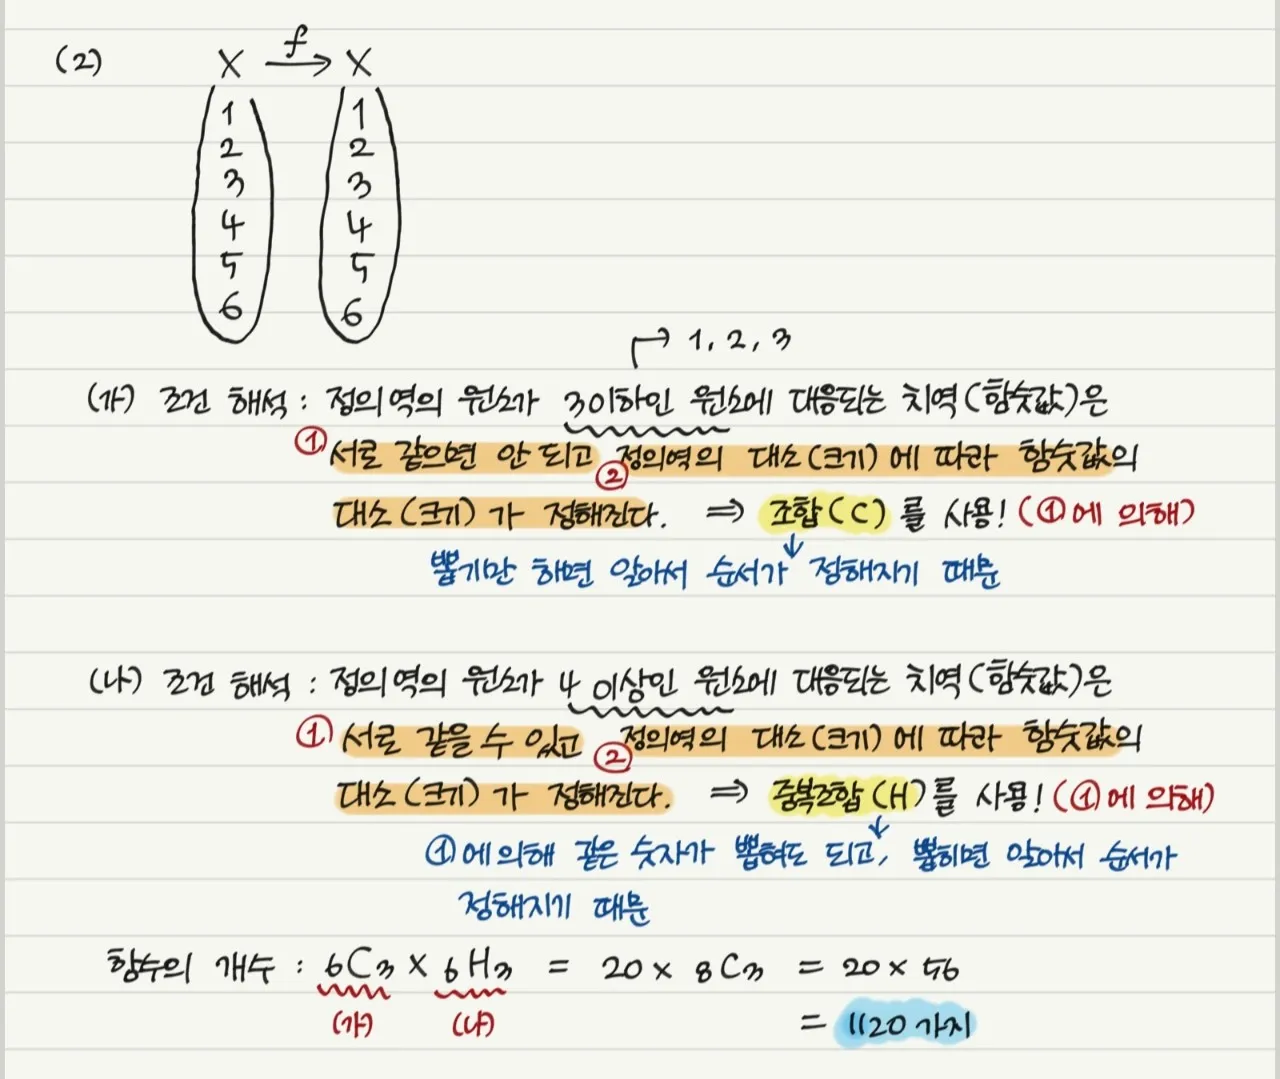 (2) X f→ X
1 1
2 2
3 3
4 4
5 5
6 6
→ 1, 2, 3
(가) 조건 해석 : 정의역의 원소가 3이하인 원소에 대응되는 치역(함숫값)은
① 서로 같으면 안 되고 ② 정의역의 대소(크기)에 따라 함숫값의
대소(크기)가 정해진다. ⇒ 조합(C)를 사용! (①에 의해)
뽑기만 하면 알아서 순서가 정해지기 때문
(나) 조건 해석 : 정의역의 원소가 4 이상인 원소에 대응되는 치역(함숫값)은
① 서로 같을 수 있고 ② 정의역의 대소(크기)에 따라 함숫값의
대소(크기)가 정해진다. ⇒ 중복조합(H)를 사용! (①에 의해)
①에 의해 같은 숫자가 뽑혀도 되고, 뽑히면 알아서 순서가
정해지기 때문
함수의 개수 : 6C3 × 6H3 = 20 × 8C3 = 20 × 56
(가) (나) = 1120 가지